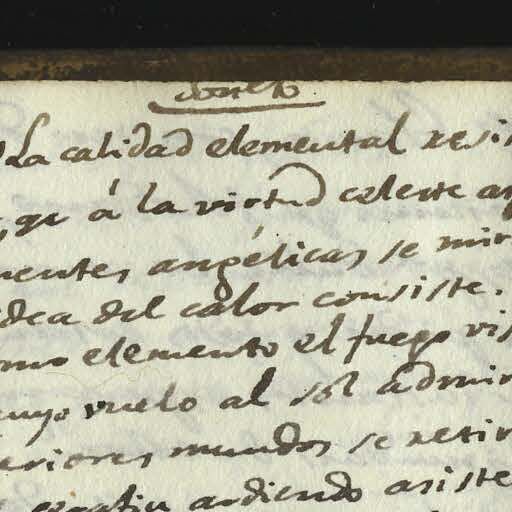 soneto
La calidad elemental resis
, qe á la virtud celeste as
mentes angélicas se mir
idea del calor consiste.
omo elemento el fuego vis
cuyo vuelo al sol admir
eriores mundos se retir
ardiendo asiste